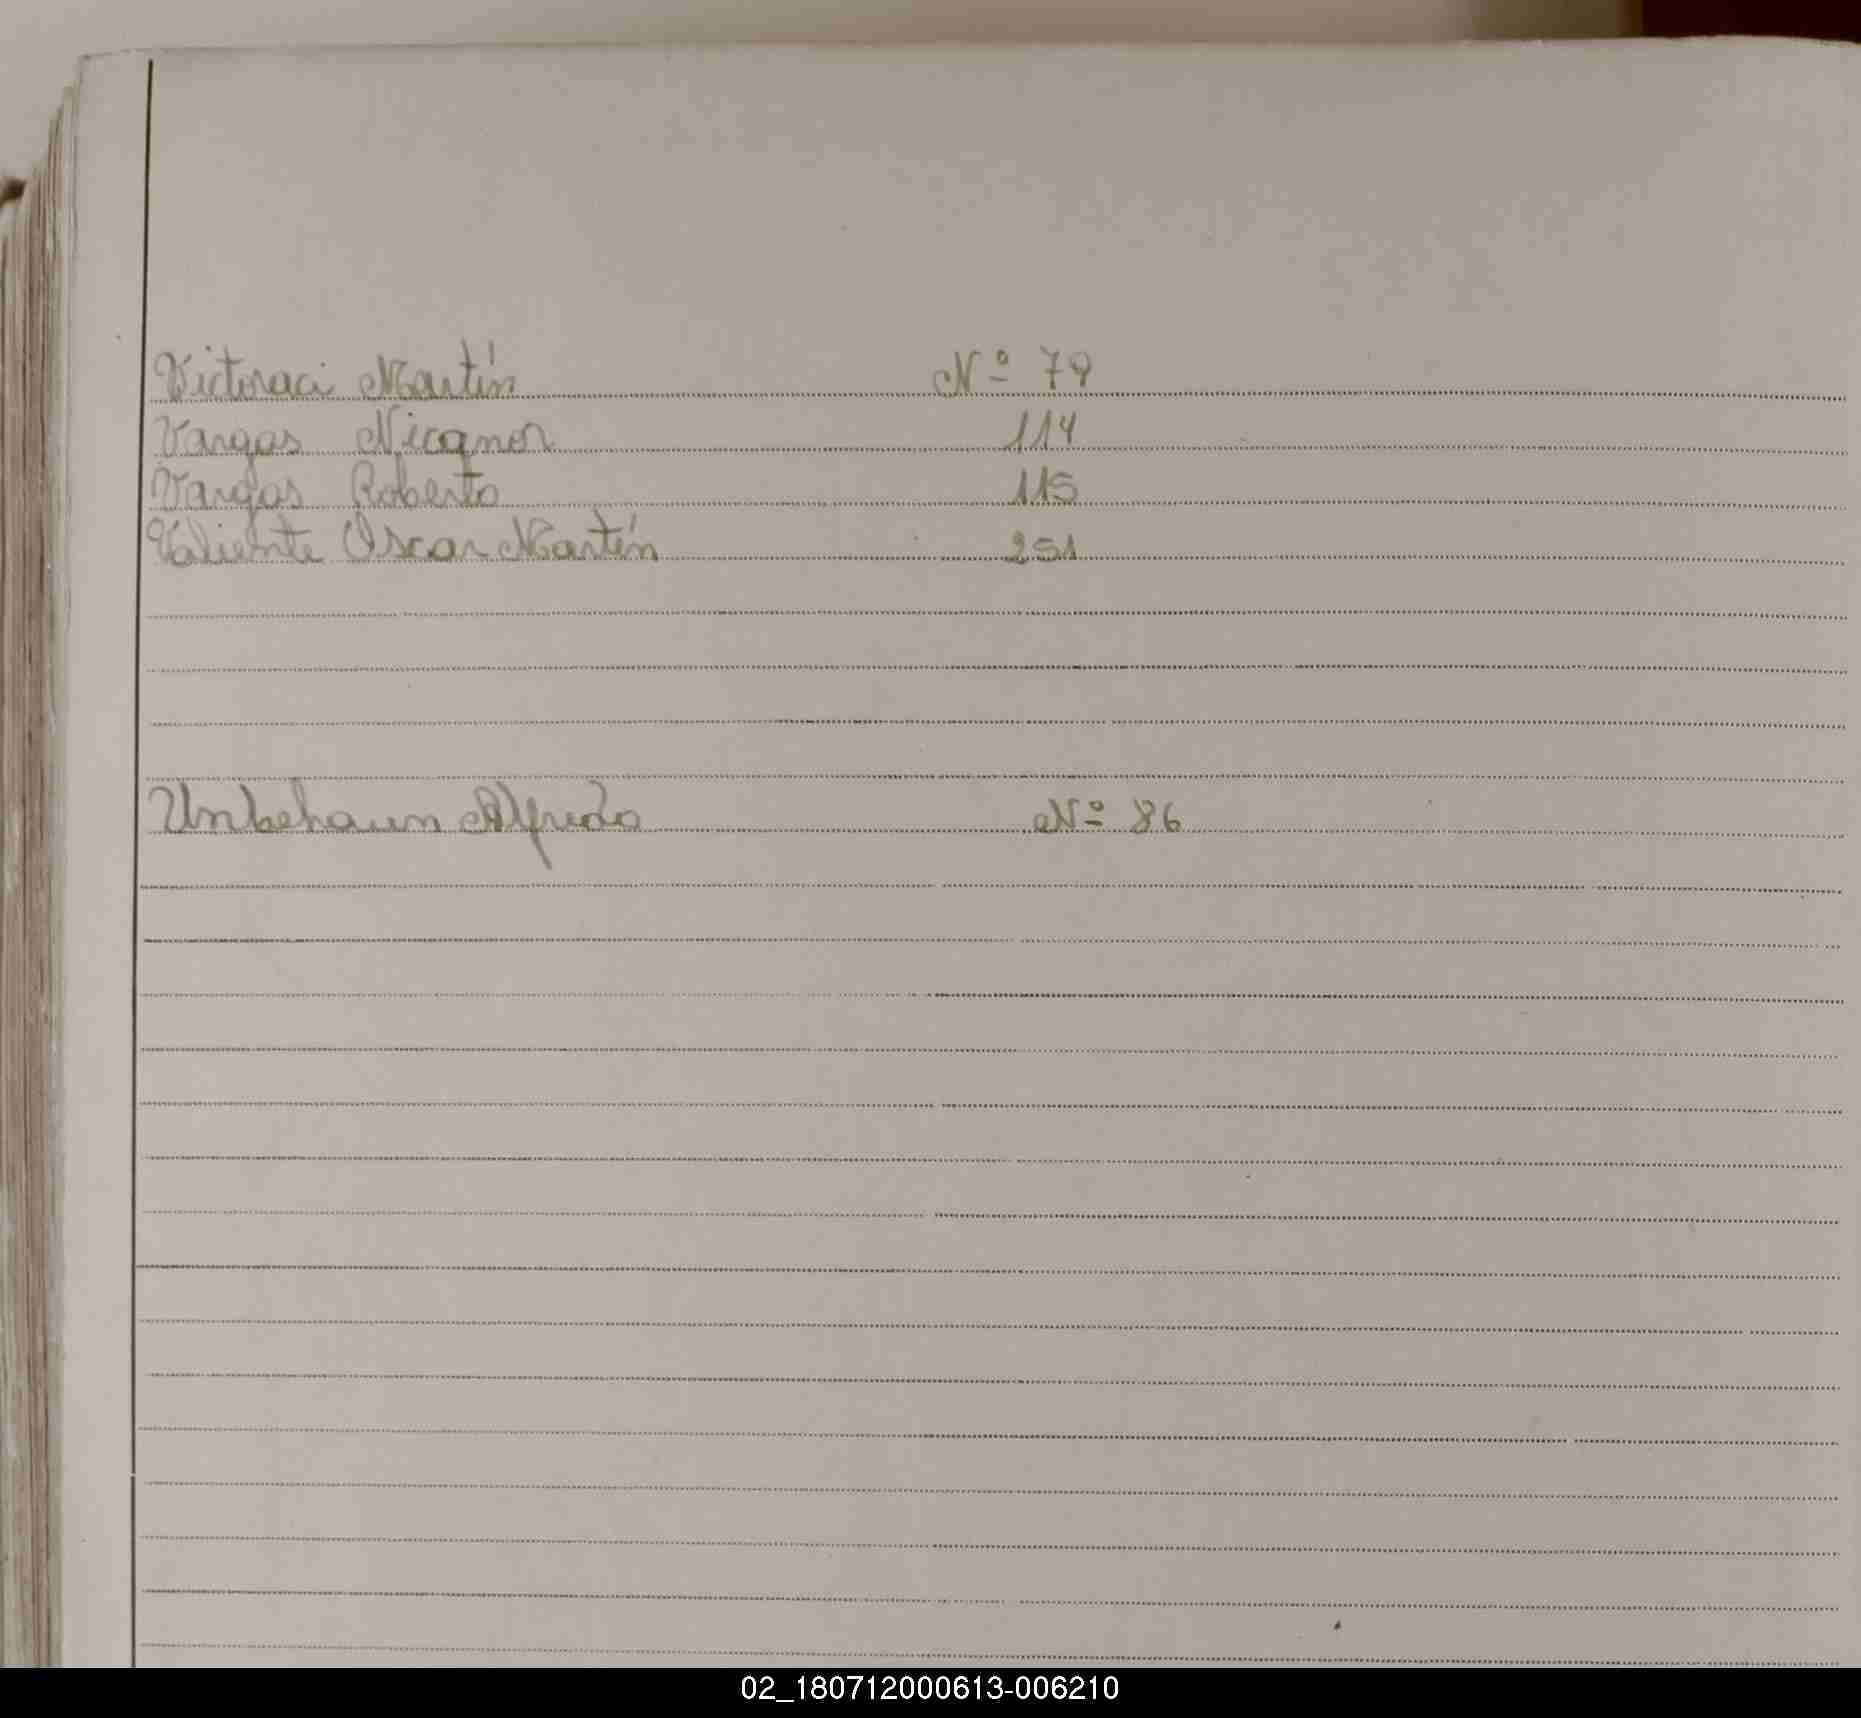 Victoraci Martín Nº 79
Vargas Nicanor 114
Vargas Roberto 115
Valiente Oscar Martín 251
Unbehaun Alfredo Nº 86
02_180712000613-006210